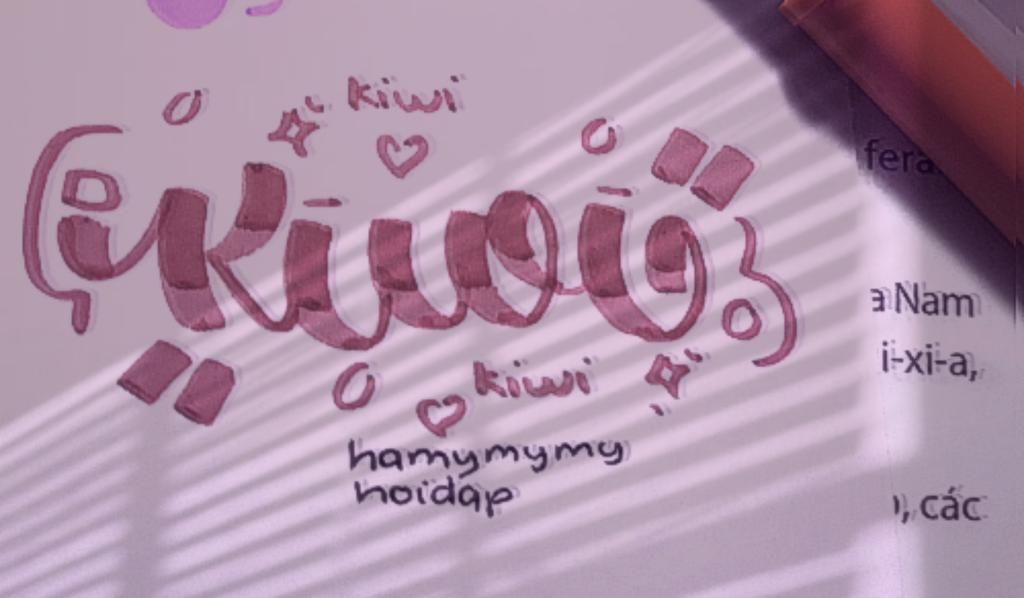 kiwi
kiwi
kiwi
hamymymy
hoidap
fera
a Nam
i-xi-a,
, các